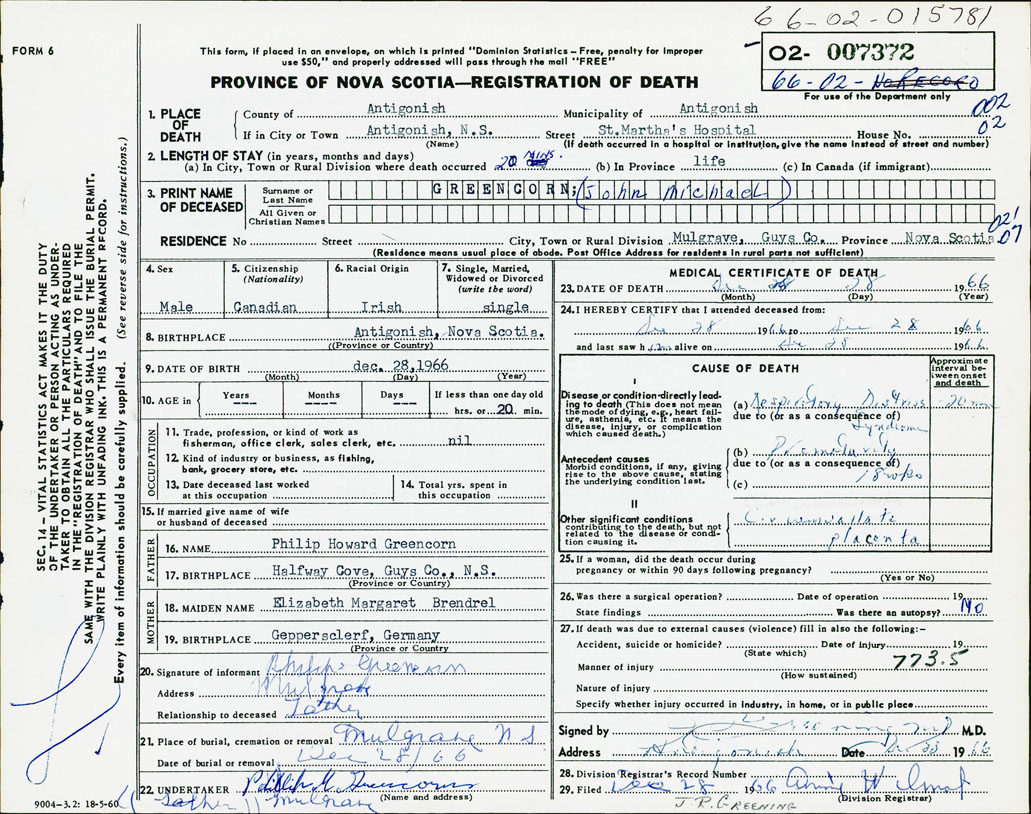 66-02-015781
FORM 6
This form, if placed in an envelope, on which is printed "Dominion Statistics – Free, penalty for improper
use $50," and properly addressed will pass through the mail "FREE"
02- 007372
66-02- NO RECORD
For use of the Department only
PROVINCE OF NOVA SCOTIA—REGISTRATION OF DEATH
002
02
1. PLACE OF DEATH County of Antigonish Municipality of Antigonish
If in City or Town Antigonish, N.S. Street St.Martha's Hospital House No.
(Name) (If death occurred in a hospital or institution, give the name instead of street and number)
2. LENGTH OF STAY (in years, months and days)
(a) In City, Town or Rural Division where death occurred 20 MINS. (b) In Province life (c) In Canada (if immigrant)
3. PRINT NAME OF DECEASED Surname or Last Name GREENCORN; (John Michael)
All Given or Christian Names
021
07
RESIDENCE No Street City, Town or Rural Division Mulgrave, Guys Co. Province Nova Scotia
(Residence means usual place of abode. Post Office Address for residents in rural parts not sufficient)
SEC. 14 – VITAL STATISTICS ACT MAKES IT THE DUTY
OF THE UNDERTAKER OR PERSON ACTING AS UNDER-
TAKER TO OBTAIN ALL THE PARTICULARS REQUIRED
IN THE "REGISTRATION OF DEATH" AND TO FILE THE
SAME WITH THE DIVISION REGISTRAR WHO SHALL ISSUE THE BURIAL PERMIT.
WRITE PLAINLY WITH UNFADING INK. THIS IS A PERMANENT RECORD.
Every item of information should be carefully supplied. (See reverse side for instructions.)
4. Sex
Male
5. Citizenship
(Nationality)
Canadian
6. Racial Origin
Irish
7. Single, Married,
Widowed or Divorced
(write the word)
single
8. BIRTHPLACE Antigonish, Nova Scotia.
((Province or Country)
9. DATE OF BIRTH dec. 28,1966
(Month) (Day) (Year)
10. AGE in Years Months Days If less than one day old
--- --- --- hrs. or 20 min.
OCCUPATION
11. Trade, profession, or kind of work as
fisherman, office clerk, sales clerk, etc. nil
12. Kind of industry or business, as fishing,
bank, grocery store, etc.
13. Date deceased last worked
at this occupation
14. Total yrs. spent in
this occupation
15. If married give name of wife
or husband of deceased
FATHER
16. NAME Philip Howard Greencorn
17. BIRTHPLACE Halfway Cove, Guys Co., N.S.
(Province or Country)
MOTHER
18. MAIDEN NAME Elizabeth Margaret Brendrel
19. BIRTHPLACE Geppersclerf, Germany
(Province or Country)
20. Signature of informant Philip Greencorn
Address Mulgrave
Relationship to deceased Father
21. Place of burial, cremation or removal Mulgrave N S
Date of burial or removal Dec 28/66
22. UNDERTAKER Greencorn
(Name and address)
(father) Mulgrave
9004-3.2: 18-5-60
MEDICAL CERTIFICATE OF DEATH
23. DATE OF DEATH Dec 28 28 1966
(Month) (Day) (Year)
24. I HERE​BY CERTIFY that I attended deceased from:
Dec 28 1966 to Dec 28 1966
and last saw him alive on Dec 28 1966
CAUSE OF DEATH
Approximate
interval be-
tween onset
and death
I
Disease or condition directly lead-
ing to death (This does not mean
the mode of dying, e.g., heart fail-
ure, asthenia, etc. It means the
disease, injury, or complication
which caused death.)
(a) Respiratory Distress 20 min
due to (or as a consequence of)
Syndrome
Antecedent causes
Morbid conditions, if any, giving
rise to the above cause, stating
the underlying condition last.
(b) Prematurity
due to (or as a consequence of)
(c)
II
Other significant conditions
contributing to the death, but not
related to the disease or condi-
tion causing it.
Circumvallate
placenta
25. If a woman, did the death occur during
pregnancy or within 90 days following pregnancy?
(Yes or No)
26. Was there a surgical operation? Date of operation 19
State findings Was there an autopsy? No
27. If death was due to external causes (violence) fill in also the following:–
Accident, suicide or homicide? Date of injury 19
(State which)
773.5
Manner of injury
(How sustained)
Nature of injury
Specify whether injury occurred in industry, in home, or in public place
Signed by MD M.D.
Address Antigonish Date Dec 28 1966
28. Division Registrar's Record Number
29. Filed Dec 28 1966
(Division Registrar)
J.R. GREENING